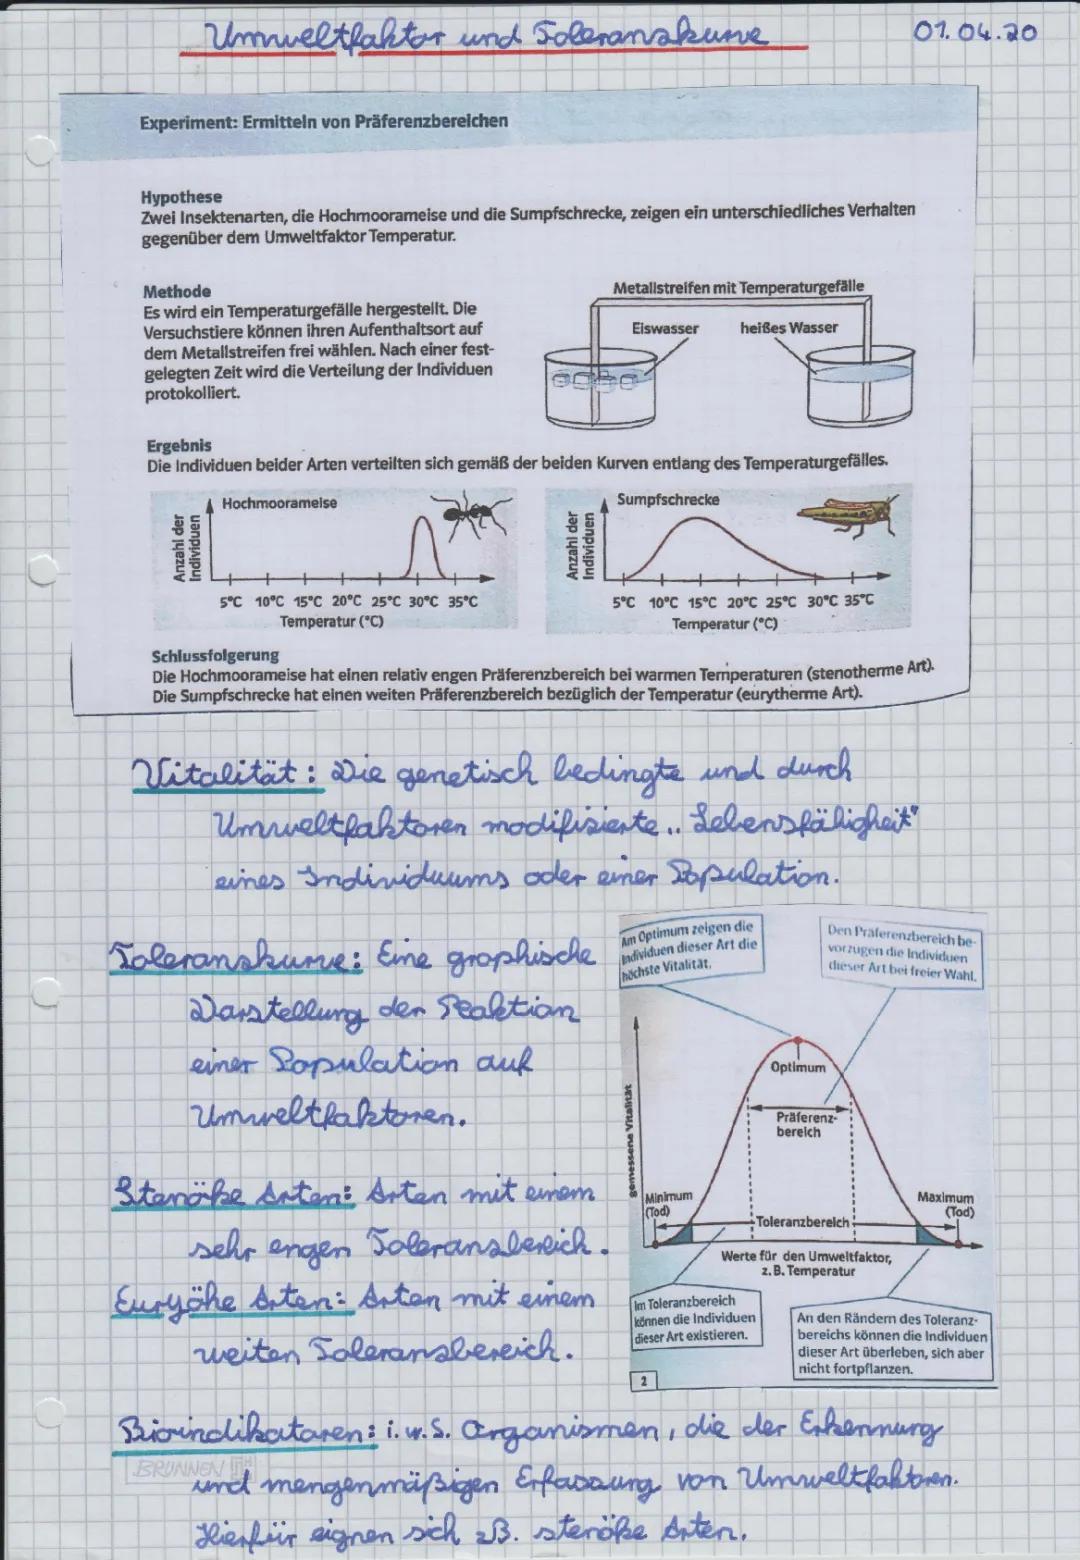 Umweltfaktor und Toleranzkurve
01.04.20
Experiment: Ermitteln von Präferenzbereichen
Hypothese
Zwei Insektenarten, die Hochmoorameise und die Sumpfschrecke, zeigen ein unterschiedliches Verhalten
gegenüber dem Umweltfaktor Temperatur.
Methode
Es wird ein Temperaturgefälle hergestellt. Die
Versuchstiere können ihren Aufenthaltsort auf
dem Metallstreifen frei wählen. Nach einer fest-
gelegten Zeit wird die Verteilung der Individuen
protokolliert.
Metallstreifen mit Temperaturgefälle
Eiswasser
heißes Wasser
Ergebnis
Die Individuen beider Arten verteilten sich gemäß der beiden Kurven entlang des Temperaturgefälles.
Hochmoorameise
Anzahl der
Individuen
5°C 10°C 15°C 20°C 25°C 30°C 35°C
Temperatur (°C)
Sumpfschrecke
Anzahl der
Individuen
5°C 10°C 15°C 20°C 25°C 30°C 35°C
Temperatur (°C)
Schlussfolgerung
Die Hochmoorameise hat einen relativ engen Präferenzbereich bei warmen Temperaturen (stenotherme Art).
Die Sumpfschrecke hat einen weiten Präferenzbereich bezüglich der Temperatur (eurytherme Art).
Vitalität: Die genetisch bedingte und durch
Umweltfaktoren modifizierte „Lebensfähigkeit"
eines Individuums oder einer Population.
Toleranzkurve: Eine graphische
Darstellung der Reaktion
einer Population auf
Umweltfaktoren.
Stenöke Arten: Arten mit einem
sehr engen Toleranzbereich.
Euryöke Arten: Arten mit einem
weiten Toleranzbereich.
Am Optimum zeigen die
Individuen dieser Art die
höchste Vitalität.
Den Präferenzbereich be-
vorzugen die Individuen
dieser Art bei freier Wahl.
gemessene Vitalität
Optimum
Präferenz-
bereich
Minimum
(Tod)
Maximum
(Tod)
Toleranzbereich
Werte für den Umweltfaktor,
z. B. Temperatur
Im Toleranzbereich
können die Individuen
dieser Art existieren.
An den Rändern des Toleranz-
bereichs können die Individuen
dieser Art überleben, sich aber
nicht fortpflanzen.
2
Bioindikatoren: i.w.S. Organismen, die der Erkennung
BRUNNEN
und mengenmäßigen Erfassung von Umweltfaktoren.
Hierfür eignen sich zB. stenöke Arten.